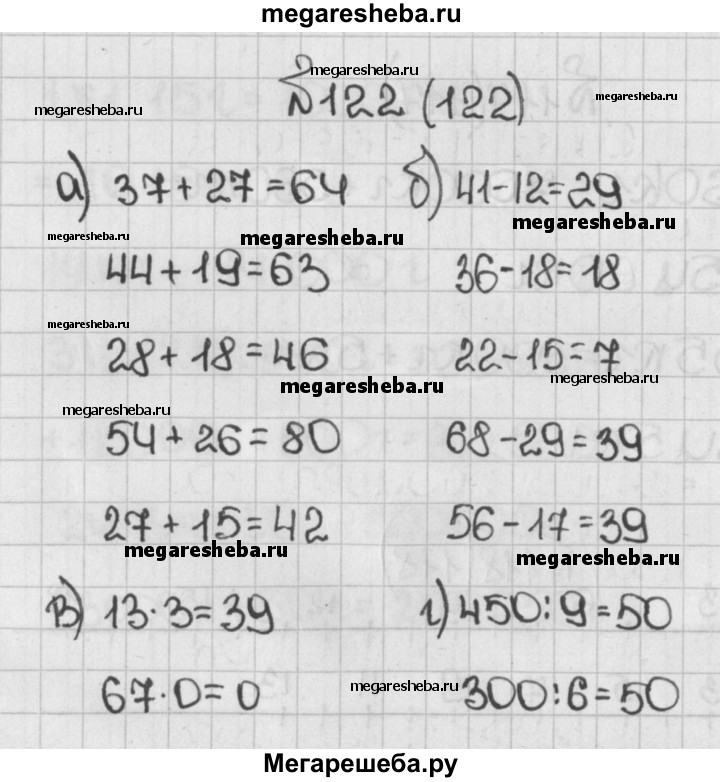 megaresheba.ru
megaresheba.ru
№122 (122)
megaresheba.ru
megaresheba.ru
а) 37+27=64 б) 41-12=29
megaresheba.ru
megaresheba.ru
megaresheba.ru
44+19=63 36-18=18
megaresheba.ru
28+18=46 22-15=7
megaresheba.ru
megaresheba.ru
megaresheba.ru
54+26=80 68-29=39
27+15=42 56-17=39
megaresheba.ru
megaresheba.ru
в) 13·3=39 г) 450:9=50
67·0=0 300:6=50
megaresheba.ru
megaresheba.ru
Мегарешеба.ру